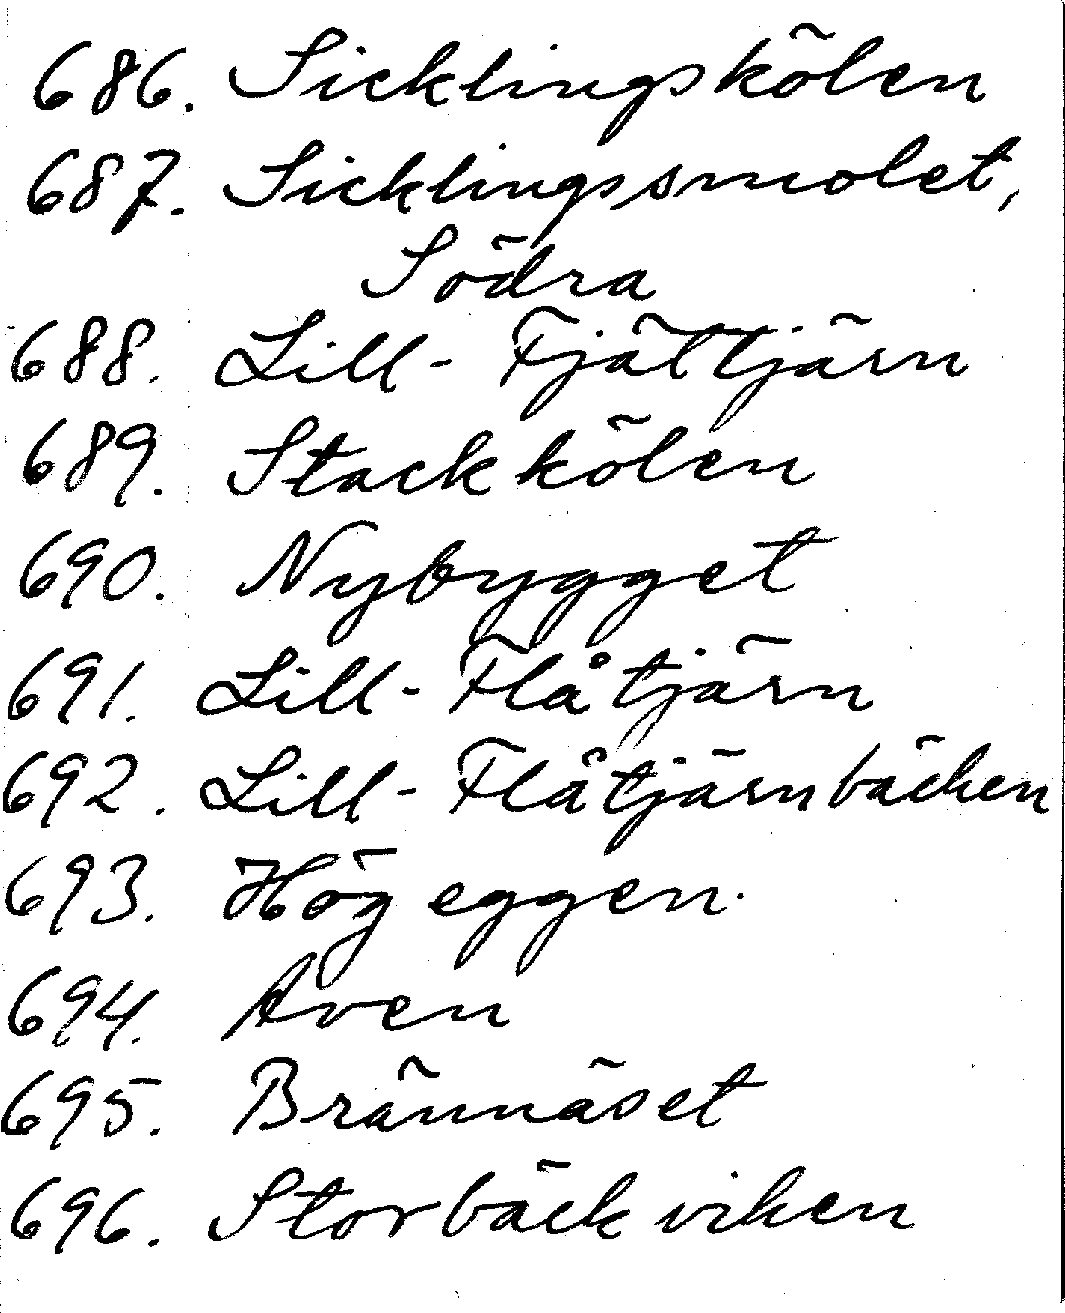 686. Sicklingskölen
687. Sicklingssmolet,
Södra
688. Lill-Fjättjärn
689. Stackkölen
690. Nybygget
691. Lill-Flåtjärn
692. Lill-Flåtjärnbäcken
693. Högeggen.
694. Aven
695. Brännäset
696. Storbäckviken